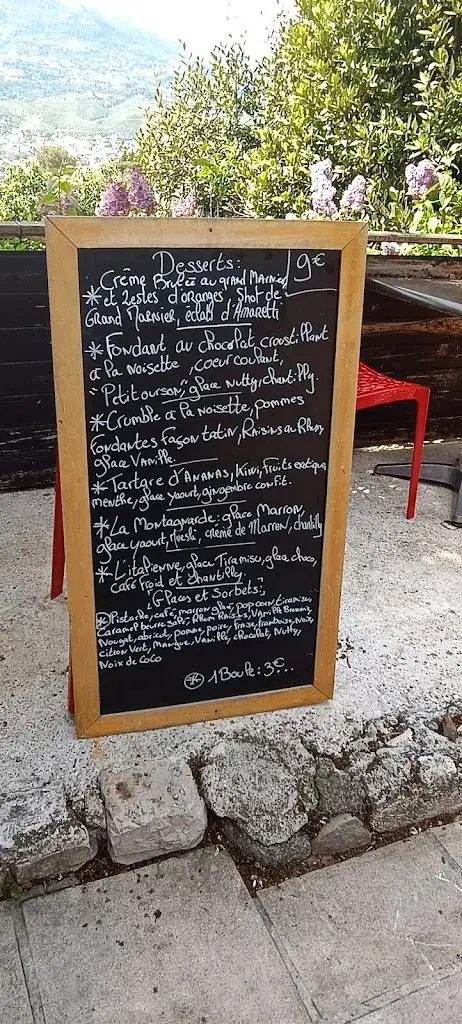 Desserts: 9€
* Crème Brûlée au grand MARNIER
et Zestes d'oranges Shot de
Grand Marnier, éclats d'Amaretti
* Fondant au chocolat, croustillant
à la noisette, coeur coulant,
"Petit ourson", glace nutty, chantilly.
* Crumble à la noisette, pommes
fondantes façon tatin, Raisins au Rhum,
glace Vanille.
* Tartare d'ANANAS, Kiwi, fruits exotiques,
menthe, glace yaourt, gingembre confit.
* La Montagnarde: glace Marron,
glace yaourt, muesli, crème de Marron, chantilly
* L'italienne, glace Tiramisu, glace choco,
café froid et chantilly
"Glaces et Sorbets":
* Pistache, café, marron glacé, pop corn, tiramisu,
Caramel beurre salé, Rhum Raisins, Vanille
Nougat, abricot, pomme, poire, fraise, framboise, Noix,
citron Vert, Mangue, Vanille, chocolat, Nutty,
Noix de Coco
* 1 Boule: 3€...